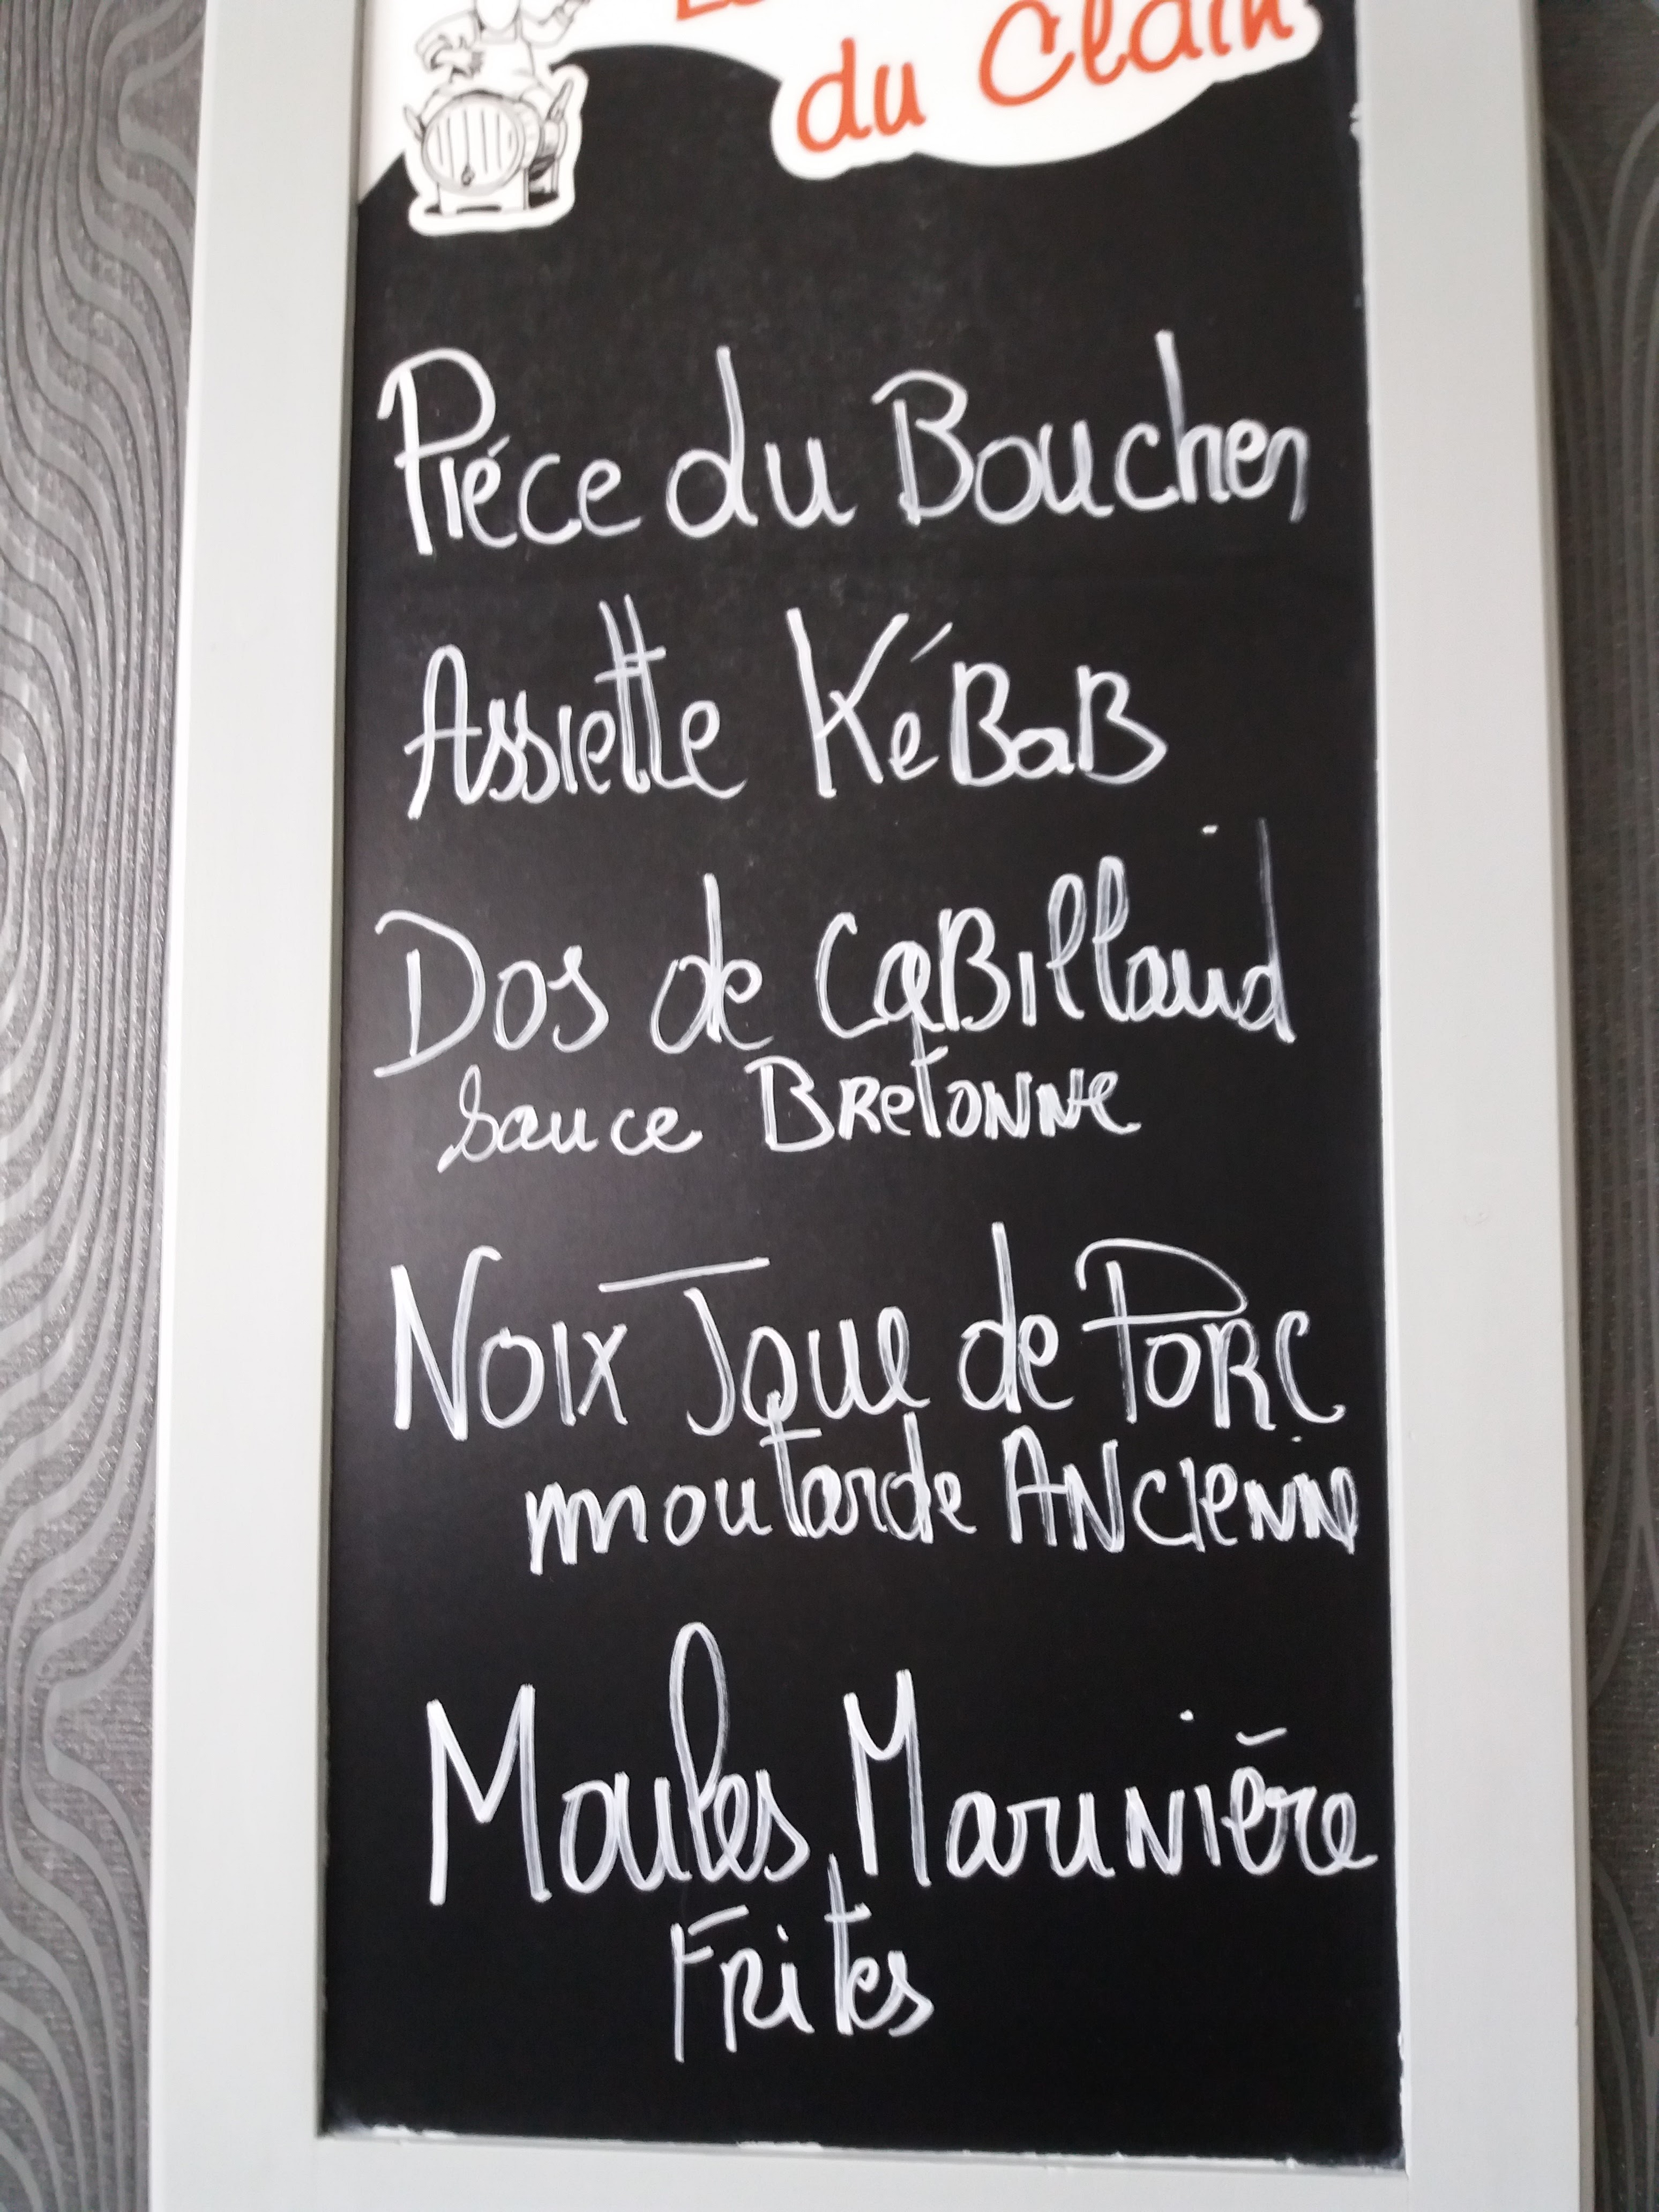 du Clain
Piéce du Boucher
Assiette KéBaB
Dos de CaBillaud
sauce BRetonne
Noix Joue de Porc
moutarde ANcienne
Moules Marinière
Frites